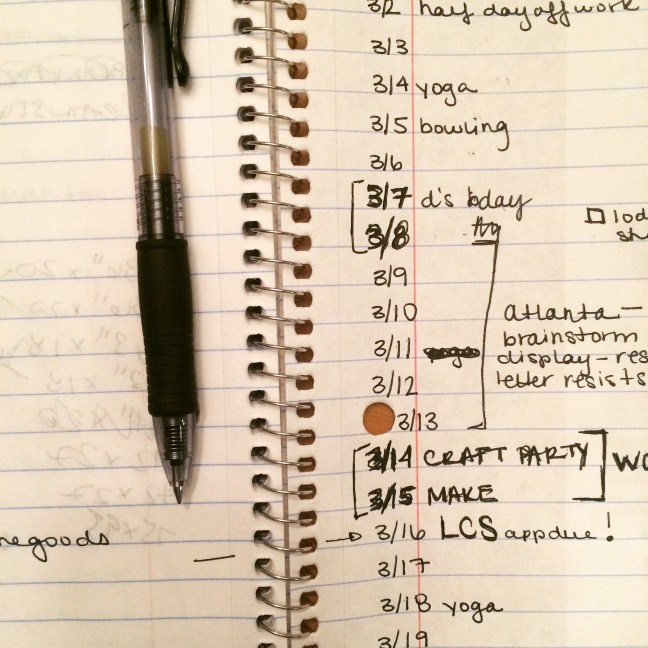 3/2 half day off work
3/3
3/4 yoga
3/5 bowling
3/6
3/7 d's bday
3/8
3/9
3/10
3/11
3/12
3/13
atlanta-
brainstorm
display-res
letter resists
3/14 CRAFT PARTY
3/15 MAKE
WO
3/16 LCS app due!
3/17
3/18 yoga
3/19
negoods